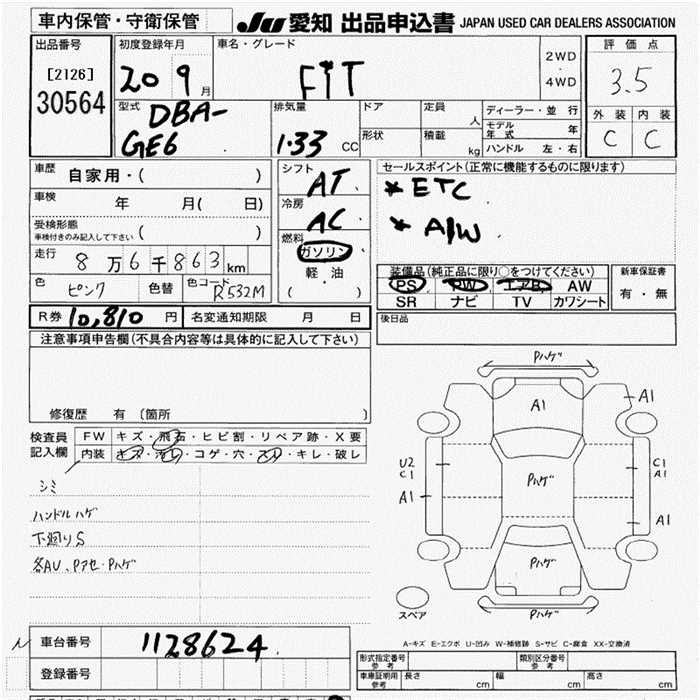 車内保管・守衛保管
JU 愛知 出品申込書 JAPAN USED CAR DEALERS ASSOCIATION
出品番号
[2126]
30564
初度登録年月
20 9月
車名・グレード
FiT
2WD
・
4WD
評価点
3.5
外装 内装
C C
型式 DBA-
GE6
排気量
1.33 CC
ドア
形状
定員 人
積載 kg
ディーラー・並行
モデル年式 年
ハンドル 左・右
車歴 自家用・( )
車検 年 月( 日)
受検形態
車検付きのみ記入して下さい ( )
走行 8万6千863km
色 ピンク 色替 色コード R532M
シフト AT
冷房 AC
燃料 ガソリン
軽・油
( )
セールスポイント(正常に機能するものに限ります)
* ETC
* A/W
装備品(純正品に限り○をつけてください)
PS PW エアB AW
SR ナビ TV カワシート
新車保証書
有・無
R券 10,810 円 名変通知期限 月 日
後日品
注意事項申告欄(不具合内容等は具体的に記入して下さい)
修復歴 有 (箇所 )
検査員記入欄
FW キズ・飛石・ヒビ割・リペア跡・X要
内装 キズ・汚レ・コゲ・穴・スレ・キレ・破レ
シミ
ハンドルハゲ
下廻りS
各AU、Pアセ・Pハゲ
Pハゲ
A1
A1
U2
C1
A1
Pハゲ
C1
A1
A1
Pハゲ
Pハゲ
スペア
A-キズ E-エクボ U-凹み W-補修跡 S-サビ C-腐食 XX-交換済
車台番号 1128624
登録番号
形式指定番号 参考
類別区分番号 参考
車庫証明用 参考 長さ cm 幅 cm 高さ cm